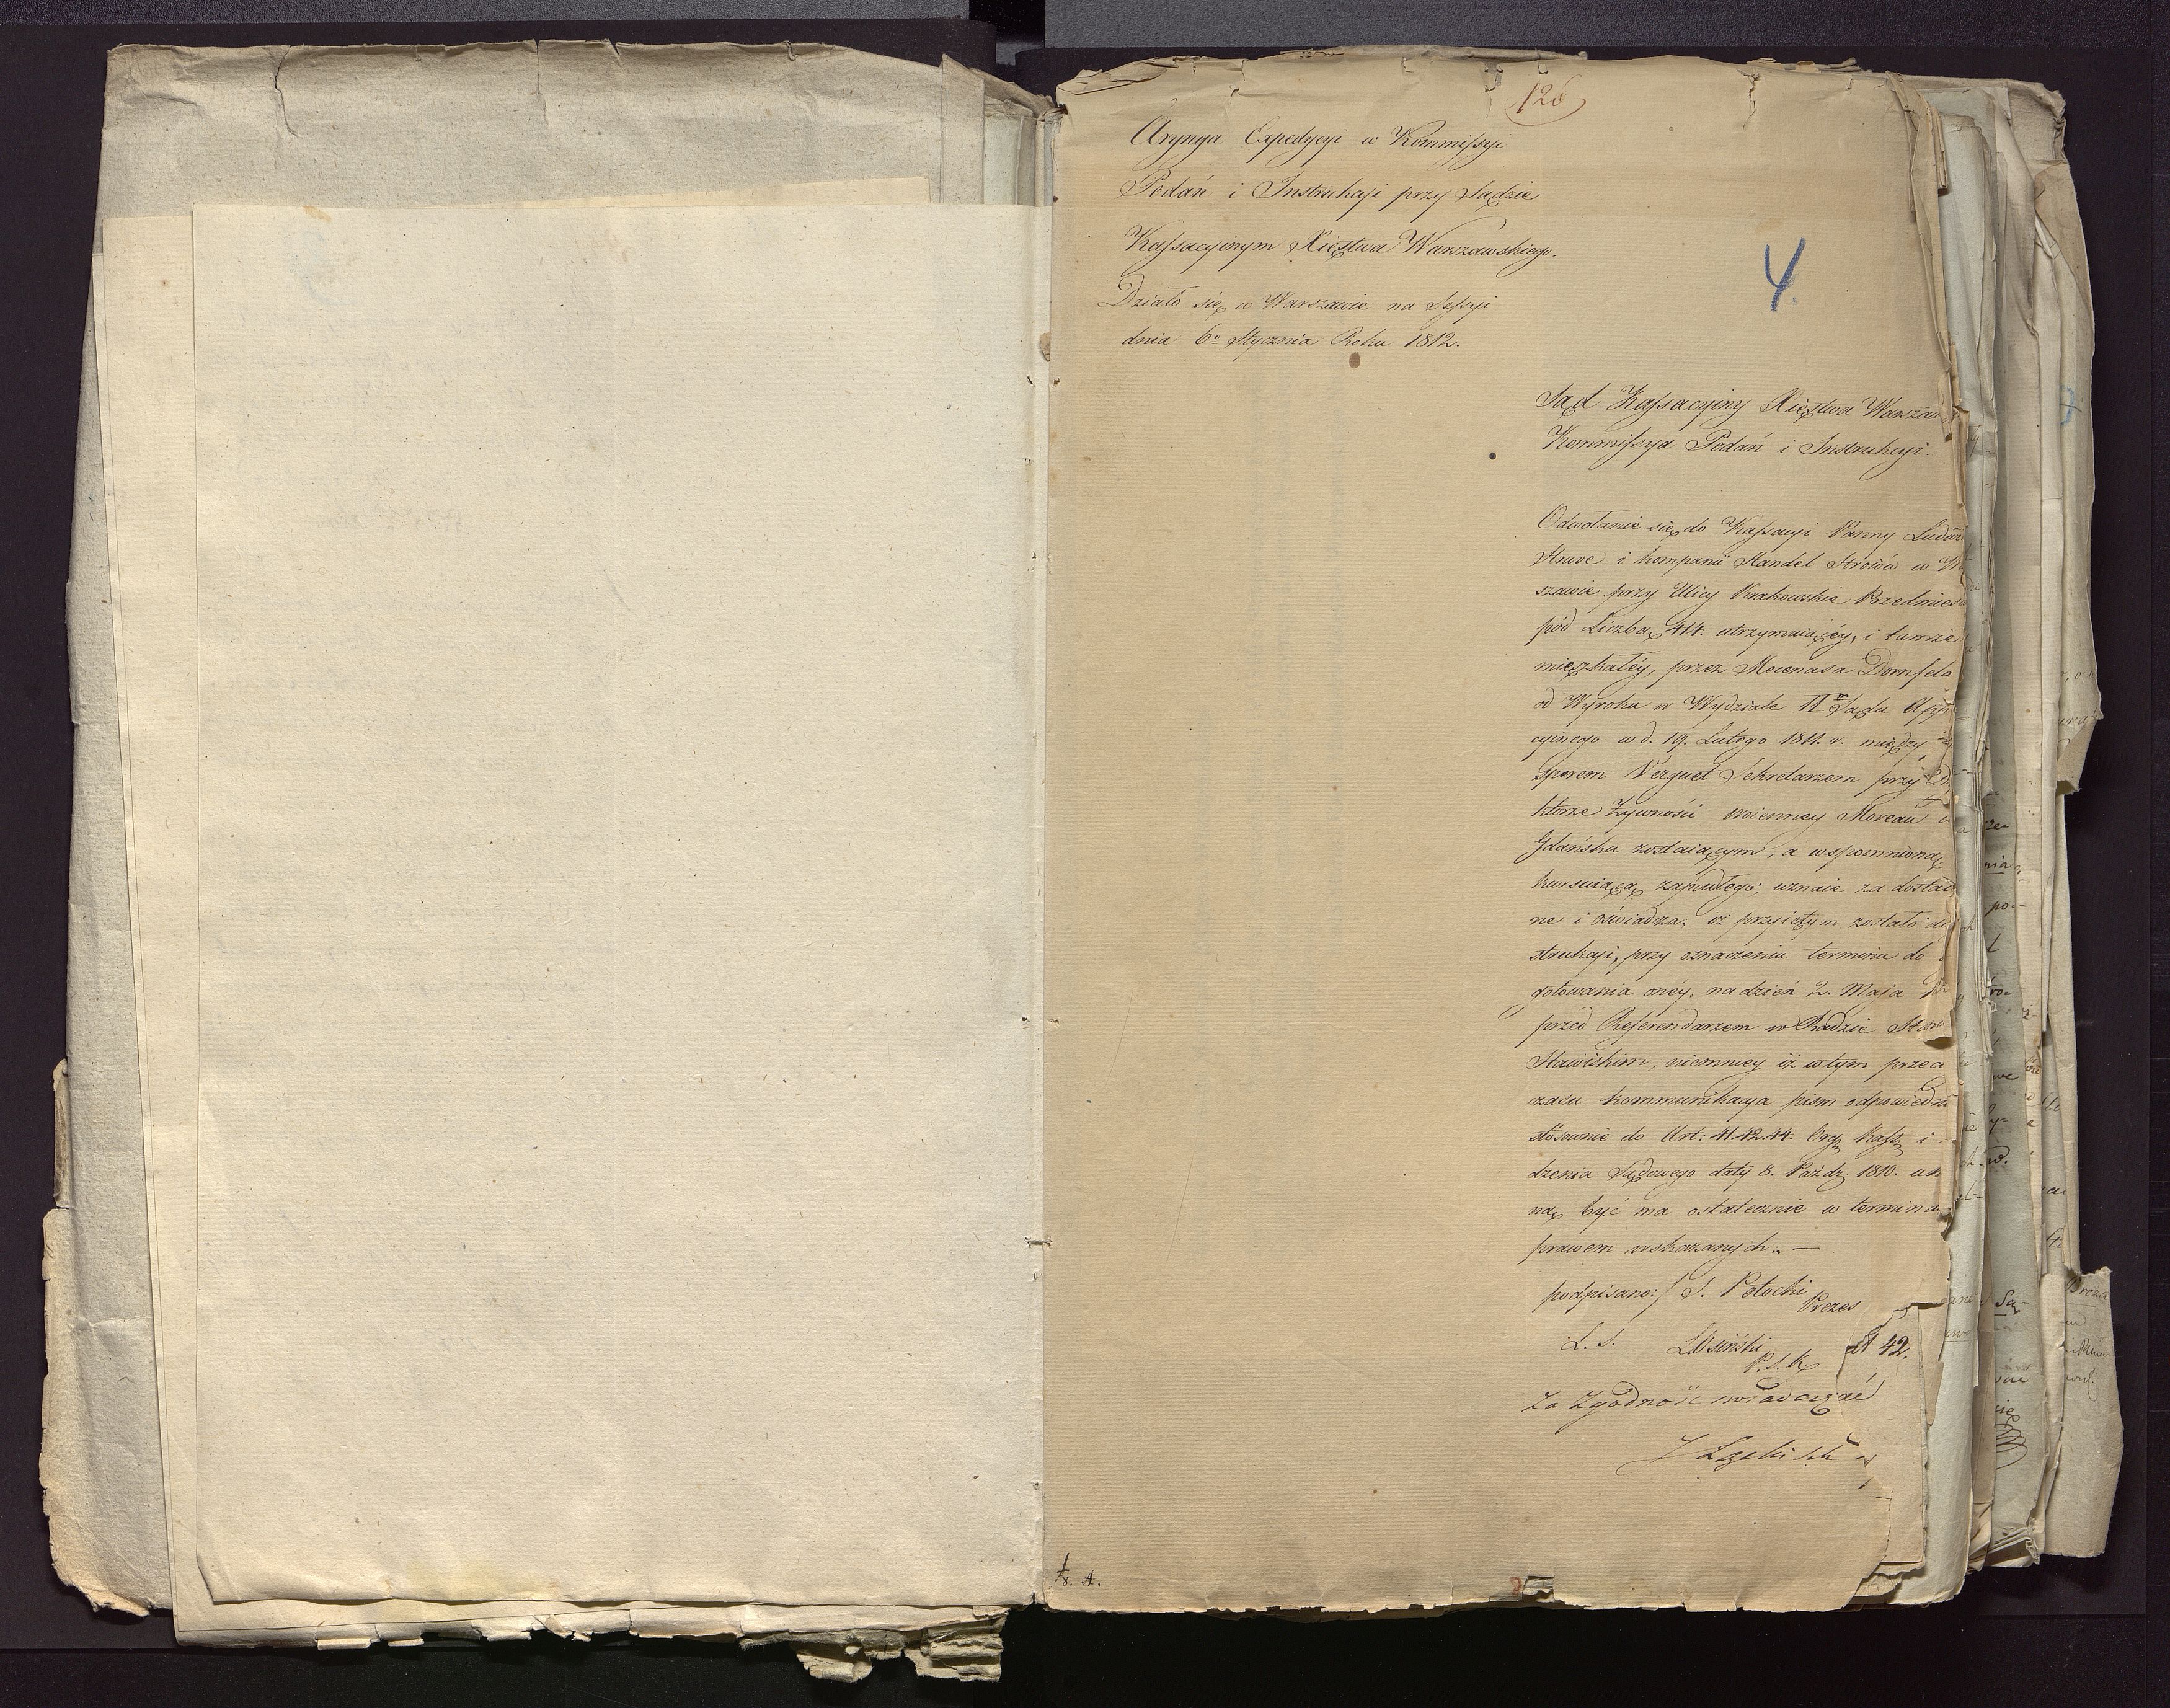 126
Arynga Expedycyi w Kommissyi
Podań i Instrukcji przy Sądzie
Kassacyinym Xięstwa Warszawskiego.
Działo się w Warszawie na Sessyi
dnia 6º Stycznia Roku 1812.
4.
Sąd Kassacyiny Xięstwa Warszaw
Kommissya Podań i Instrukcyi.
Odwołanie się do Kassacyi Panny
Struve i kompanii Handel Strojów w
szawie przy Ulicy Krakowskie Przedmieś
pód Liczbą 414. utrzymuiącéy, i tamże
mięszkałéy, przez Mecenasa Dornfeld
od Wyroku w Wydziale II Sądu App
cyinego w d. 19. Lutego 1811. r. między
sporem Verguet Sekretarzem przy
ktorze Żywności woienney Moreau
Gdańsku zostaiącym, a wspomnioną
kursuiącą zapadłego; uznaie za dostate
ne i oświadcza; iż przyiętym zostało do
strukcji, przy oznaczeniu terminu do
gotowania oney, na dzień 2. Maia
przed Referendarzem w Radzie Stanu
Stawiskim, niemniey iż w tym przeci
zasu kommunikacya pism odpowiedni
stósownie do Art: 41.42.44. Org. Kass. i
dzenia Sądowego daty 8. Paźdz. 1810. us
ną być ma ostatecznie w termina
prawem wskazanych. —
podpisano:/ S. Potocki
Prezes
L. S. L. Osiński
P. S. K.
42.
Za Zgodność